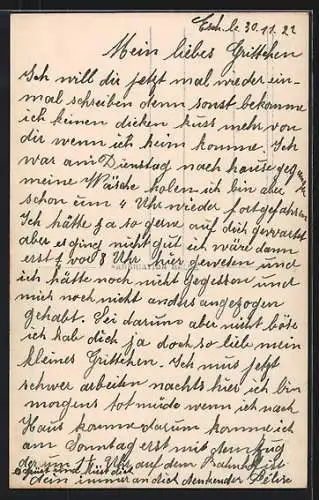 Esch. le 30.11.22
Mein liebes Grittchen
Ich will dir jetzt mal wieder ein-
mal schreiben denn sonst bekomme
ich keinen dicken kuss mehr von
dir wenn ich heim komme. Ich
war am Dienstag nach hause gegangen
meine Wäsche holen ich bin aber
schon um 4 Uhr wieder fortgefahren
Ich hätte ja so gerne auf dich gewartet
aber es ging nicht gut ich wäre dann
erst vor 8 Uhr hier gewesen und
ich hätte noch nicht gegessen und
mich noch nicht anders angezogen
gehabt. Sei darum aber nicht böse
ich hab dich ja doch so lieb mein
kleines Grittchen. Ich mus jetzt
schwer arbeiten nachts hier ich bin
morgens tot müde wenn ich nach
Haus komme darum komme ich
am Sonntag erst mit dem Zug
der um Uhr auf dem Bahnhof ist
Gruss und Kuss
dein immer an dich denkender